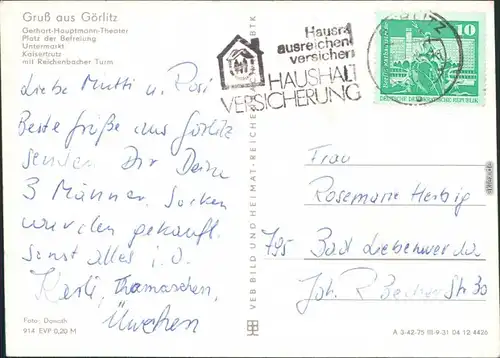 Gruß aus Görlitz
Gerhart-Hauptmann-Theater
Platz der Befreiung
Untermarkt
Kaisertrutz
mit Reichenbacher Turm
Liebe Mutti u. Rosi
Beste Grüße aus Görlitz
senden Dir Deine
3 Männer. Socken
wurden gekauft.
Sonst alles i. O.
Foto: Donath
914 EVP 0,20 M
VEB BILD UND HEIMAT · REICHENBACH
Hausrat
ausreichend
versichern
HAUSHALT
VERSICHERUNG
10
DEUTSCHE DEMOKRATISCHE REPUBLIK
Frau
Rosemarie Herbig
795 Bad Liebenwerda
Joh. R. Becher Str 30
A 3-42-75 III-9-31 04 12 4426